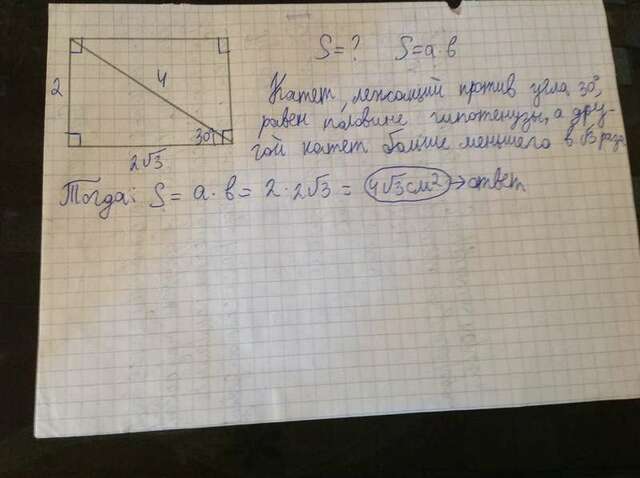 S=? S=a·в
2
4
30°
2√3
Катет, лежащий против угла 30°,
равен половине гипотенузы, а дру-
гой катет больше меньшего в √3 раз.
Тогда: S= a·в= 2·2√3 = 4√3см² → ответ